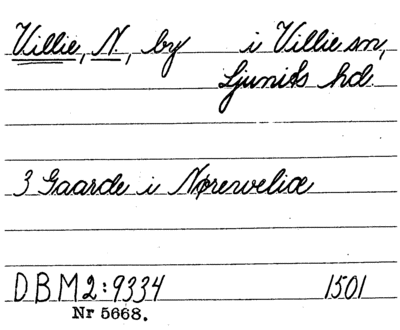 Villie, N., by i Villie sn,
Ljunits hd.
3 Gaarde i Nøreweliæ
DBM2:9334 1501
Nr 5668.